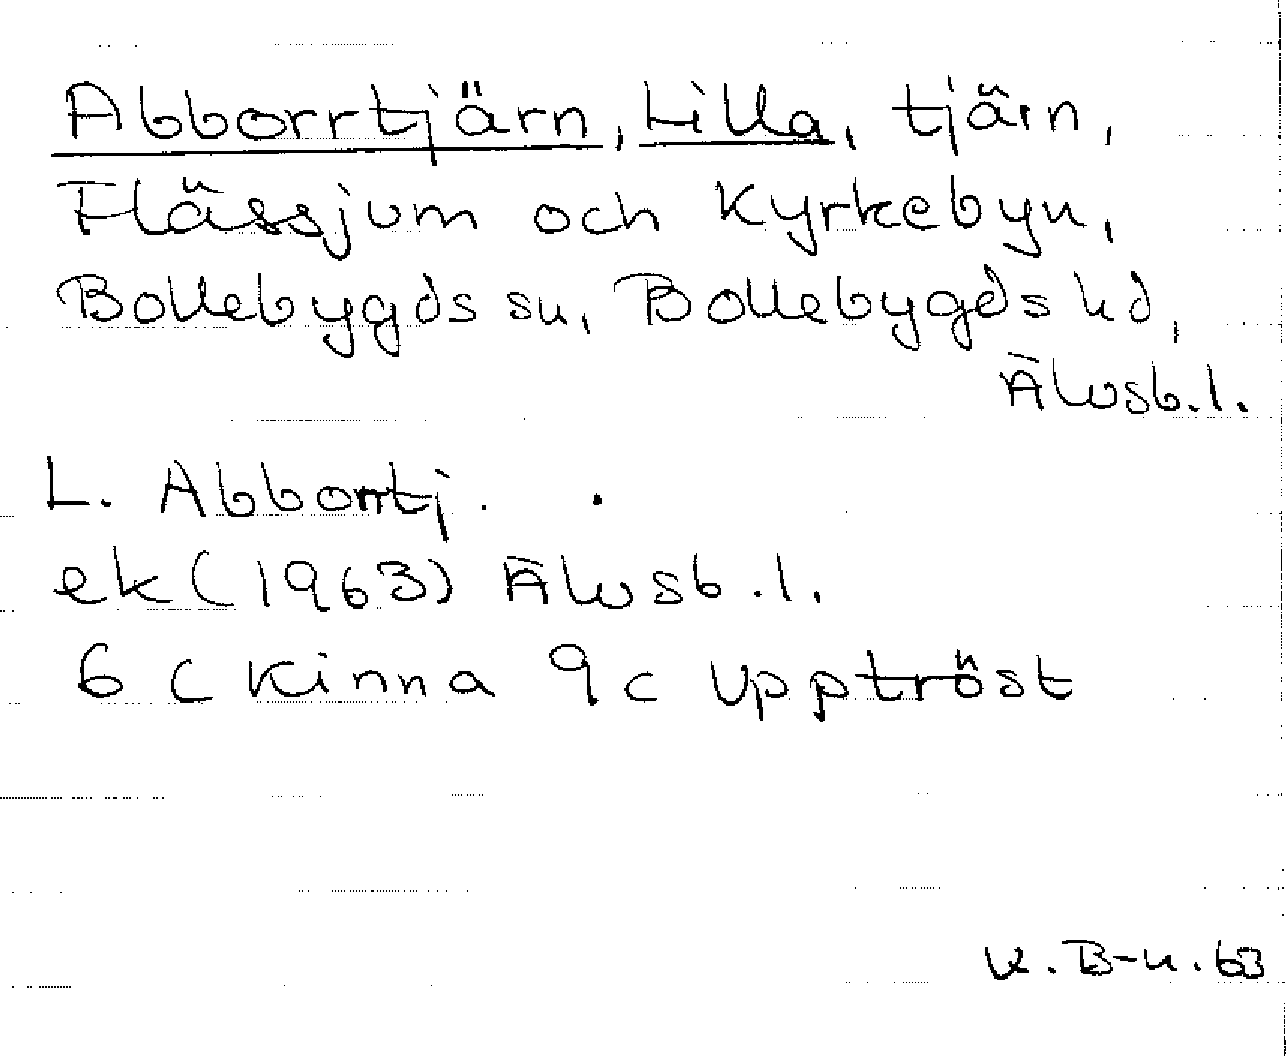 Abborrtjärn, Lilla, tjärn,
Flässjum och Kyrkebyn,
Bollebygds sn, Bollebygds hd,
Älvsb.l.
L. Abborrtj.
ek (1963) Älvsb.l.
6 C Kinna 9 c Upptröst
K. B-n. 63